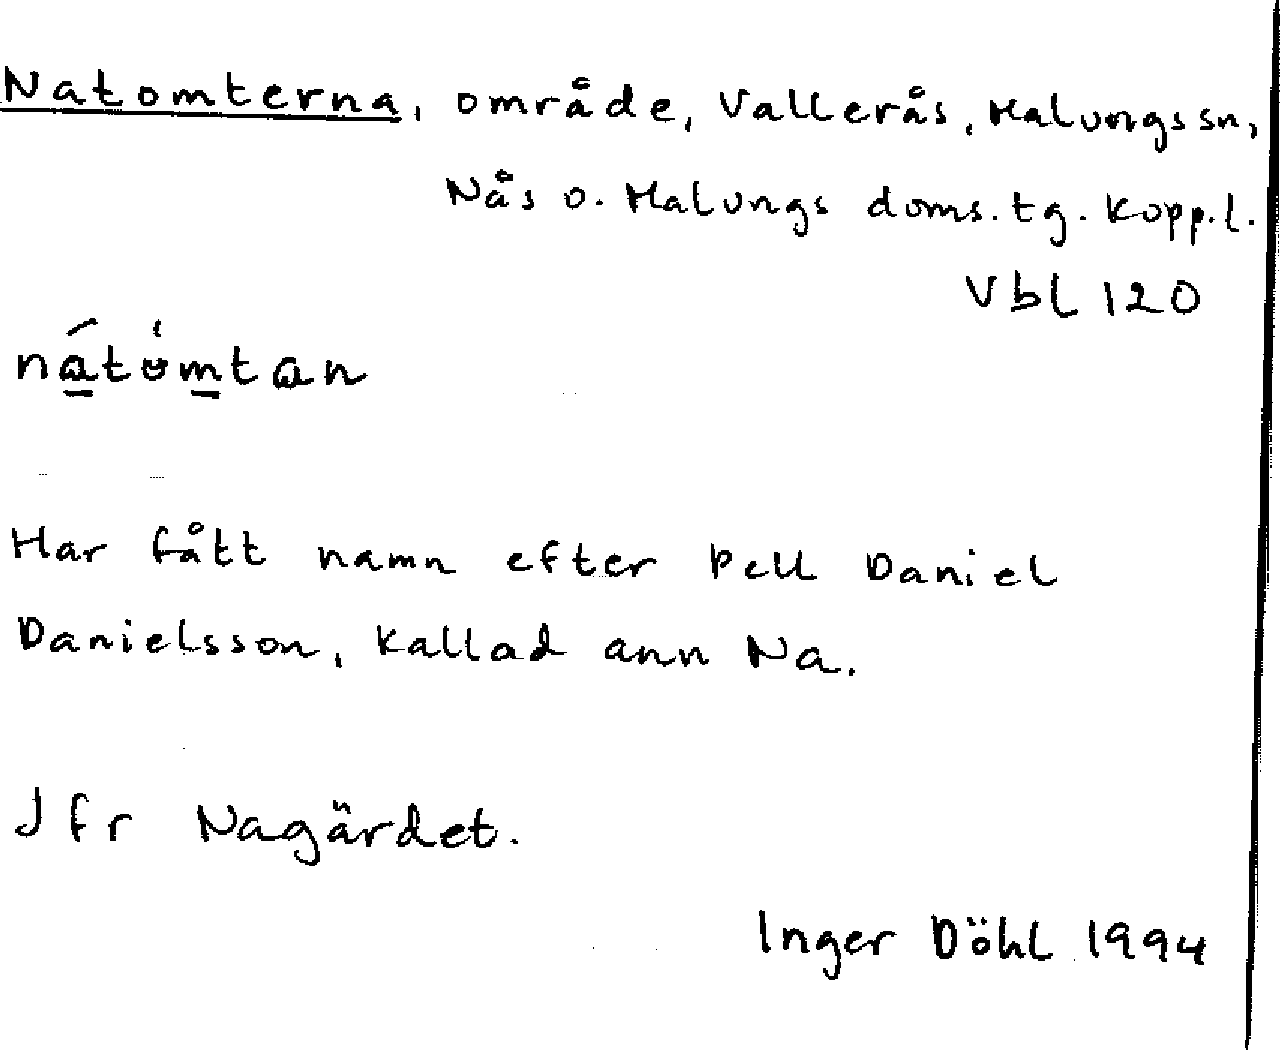 Natomterna, område, Vallerås, Malungs sn,
Nås o. Malungs doms. tg. Kopp. l.
Vbl 120
nátômtan
Har fått namn efter Pell Daniel
Danielsson, kallad ann Na.
Jfr Nagärdet.
Inger Döhl 1994